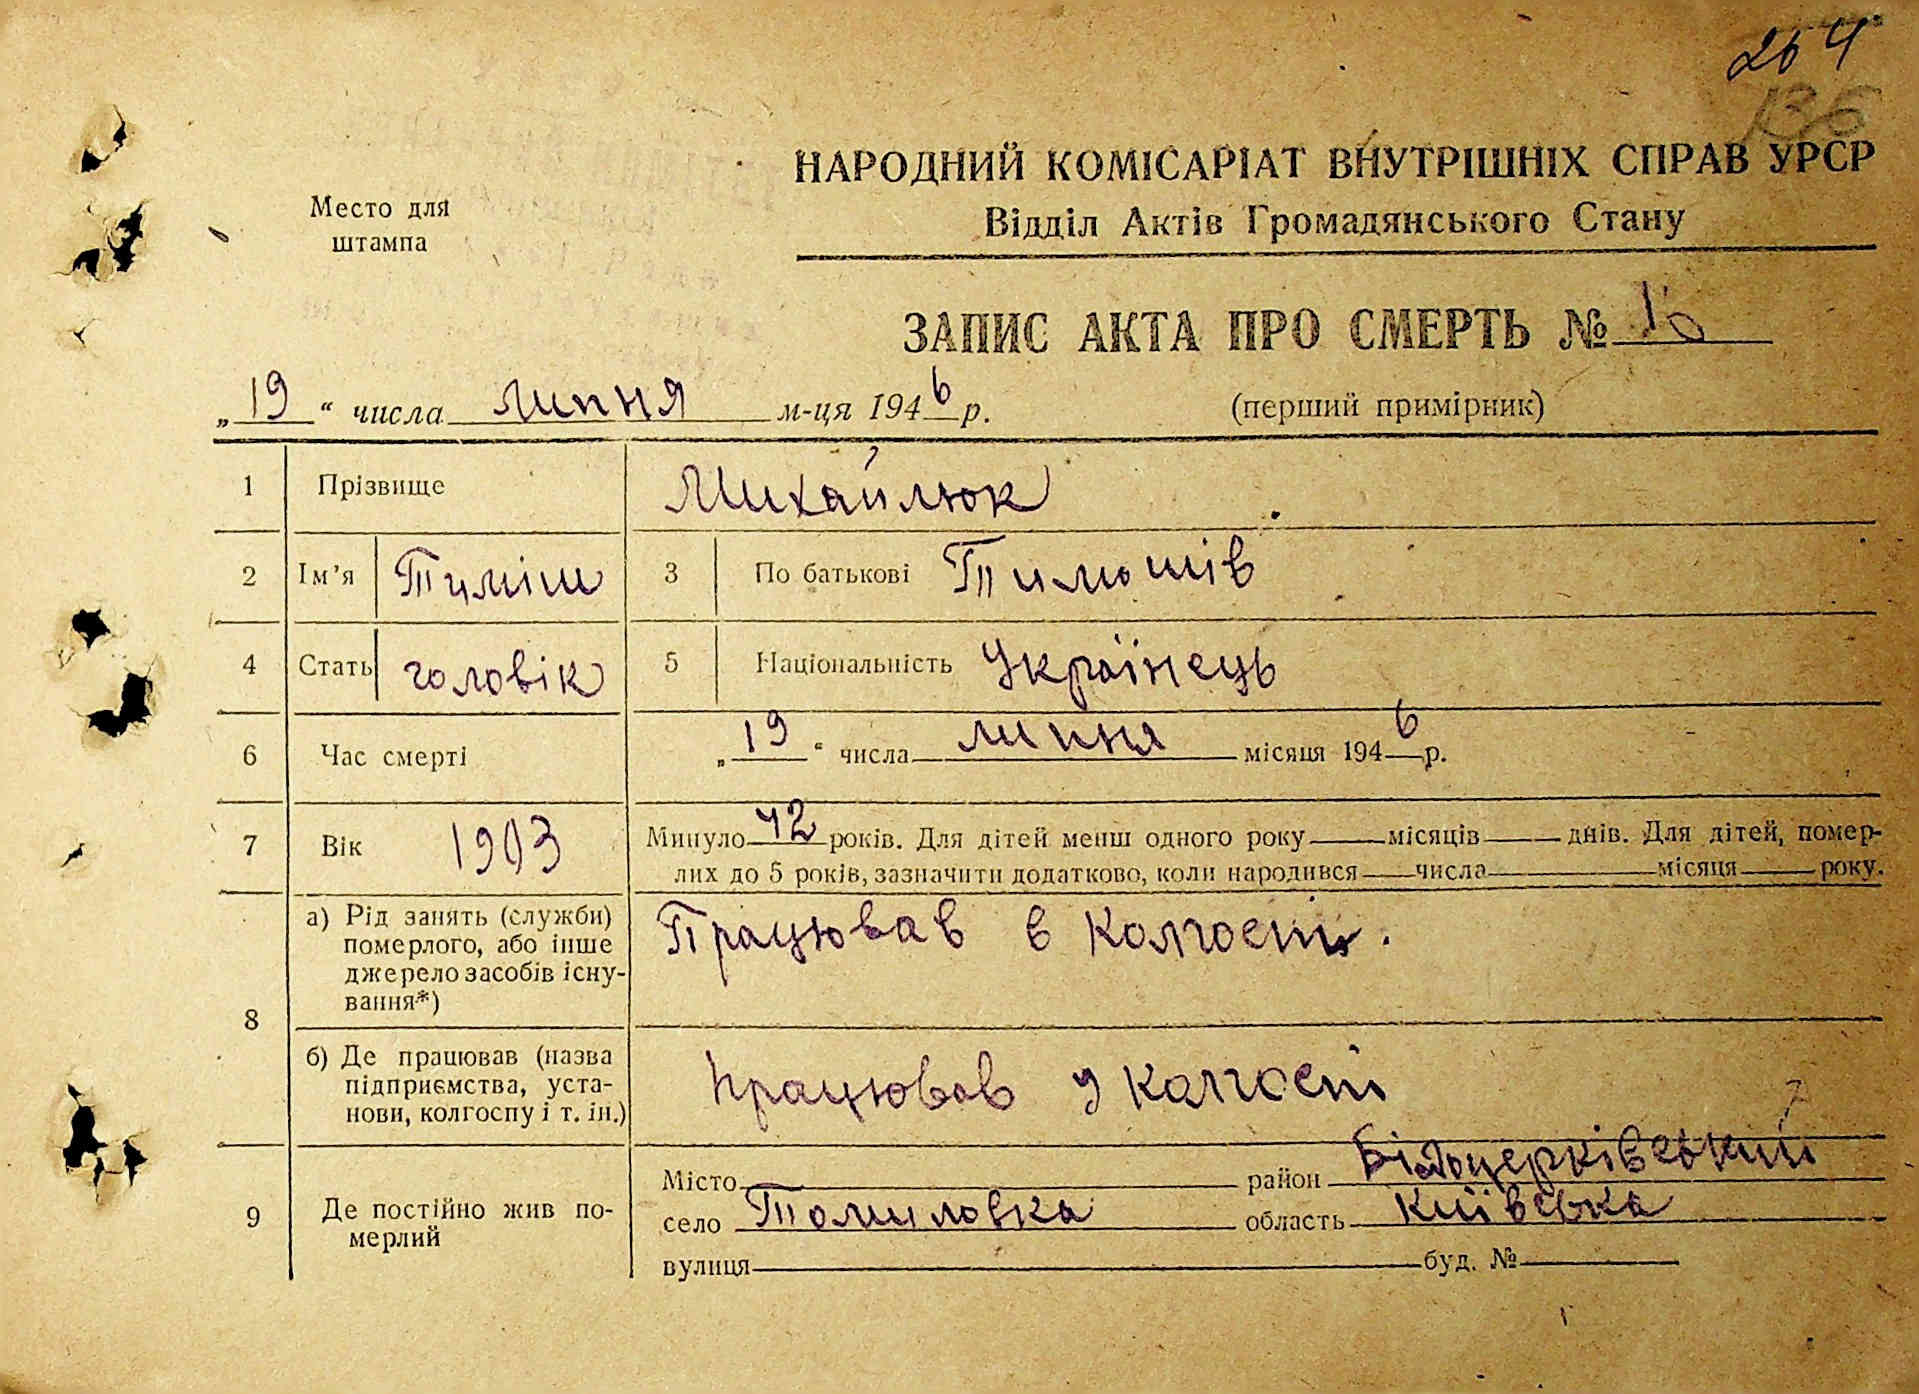 264
136
НАРОДНИЙ КОМІСАРІАТ ВНУТРІШНІХ СПРАВ УРСР
Відділ Актів Громадянського Стану
Место для
штампа
ЗАПИС АКТА ПРО СМЕРТЬ № 16
„19“ числа липня м-ця 1946 р.
(перший примірник)
1 Прізвище Михайлюк
2 Ім’я Тиміш 3 По батькові Тимошів
4 Стать чоловік 5 Національність Українець
6 Час смерті „19“ числа липня місяця 1946 р.
7 Вік 1903 Минуло 42 років. Для дітей менш одного року місяців днів. Для дітей, помер-
лих до 5 років, зазначити додатково, коли народився числа місяця року.
8 а) Рід занять (служби)
померлого, або інше
джерело засобів існу-
вання*)
Працював в колгоспі.
б) Де працював (назва
підприємства, уста-
нови, колгоспу і т. ін.)
працював у колгоспі
9 Де постійно жив по-
мерлий
Місто район Білоцерківський
село Томиловка область Київська
вулиця буд. №